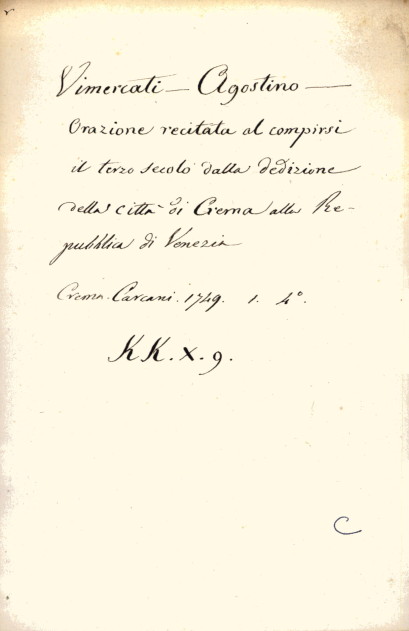 Vimercati — Agostino —
Orazione recitata al compirsi
il terzo secolo dalla dedizione
della città di Crema alla Re-
pubblica di Venezia
Crema. Carcani. 1749. 1. 4°.
KK. X. 9.
C